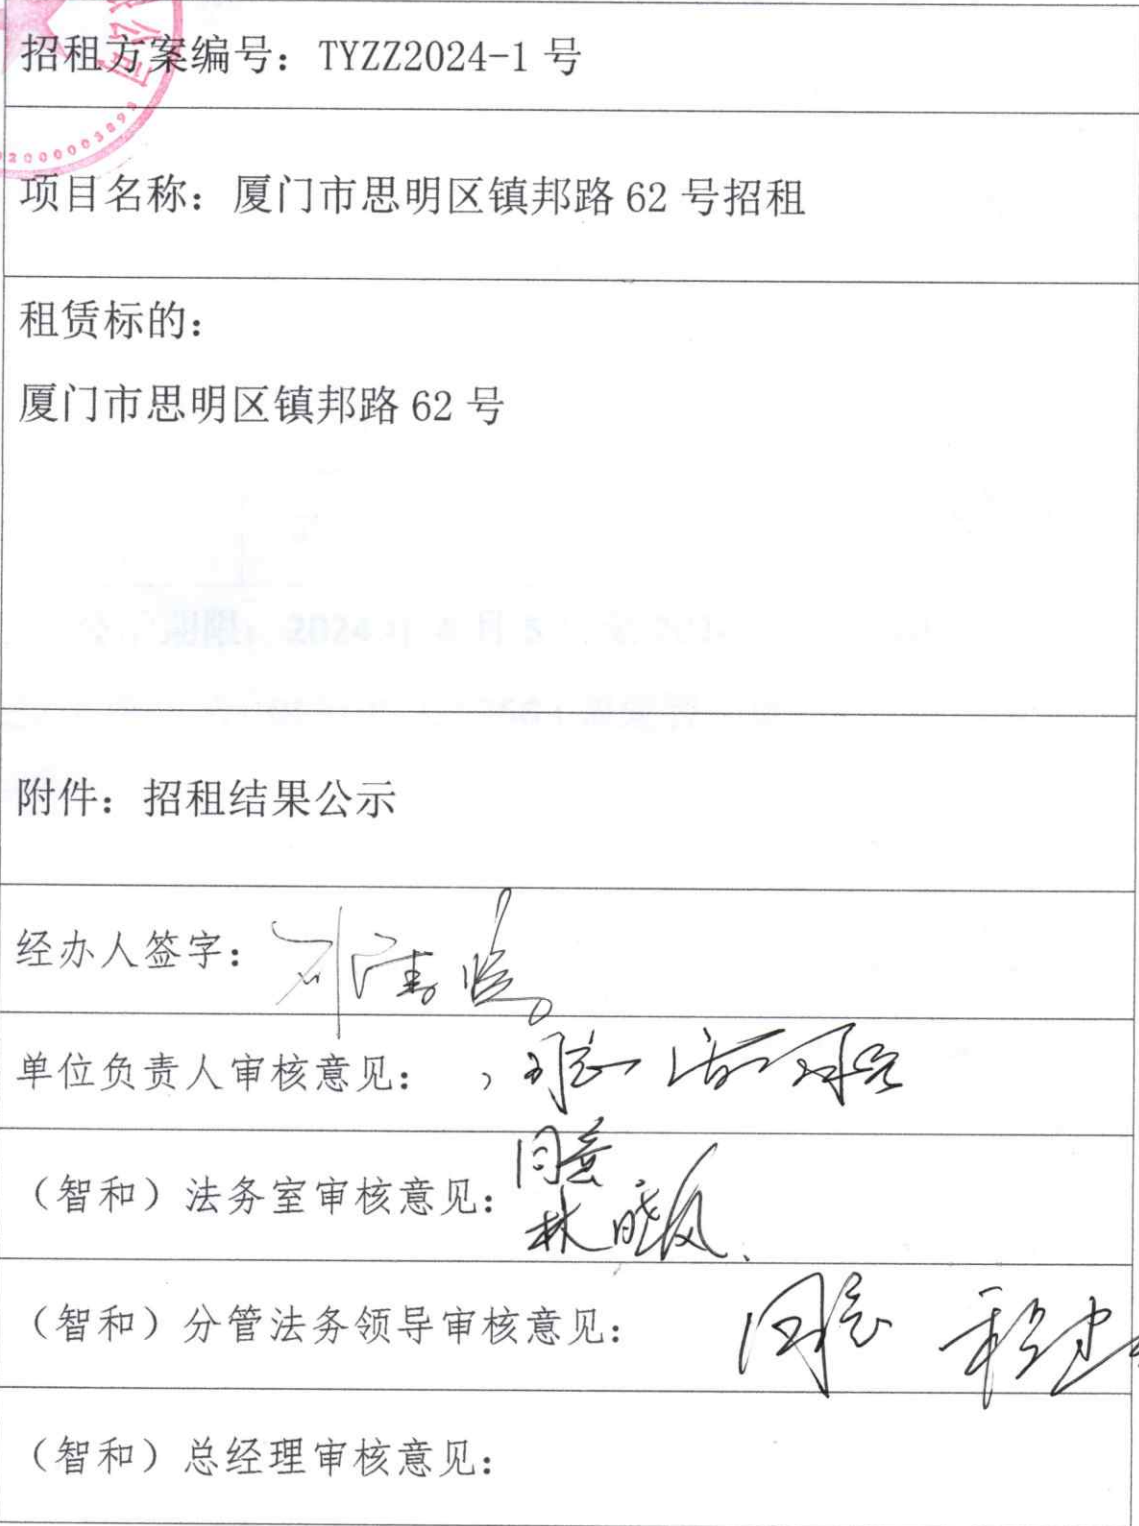 招租方案编号：TYZZ2024-1 号
项目名称：厦门市思明区镇邦路 62 号招租
租赁标的：
厦门市思明区镇邦路 62 号
附件：招租结果公示
经办人签字：
单位负责人审核意见：同意
（智和）法务室审核意见：同意
林晓凤
（智和）分管法务领导审核意见：同意
（智和）总经理审核意见：